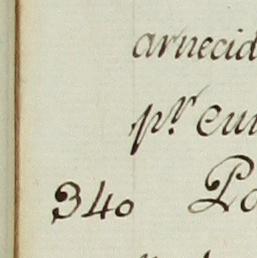 arnecid
pr. cui
340 Po